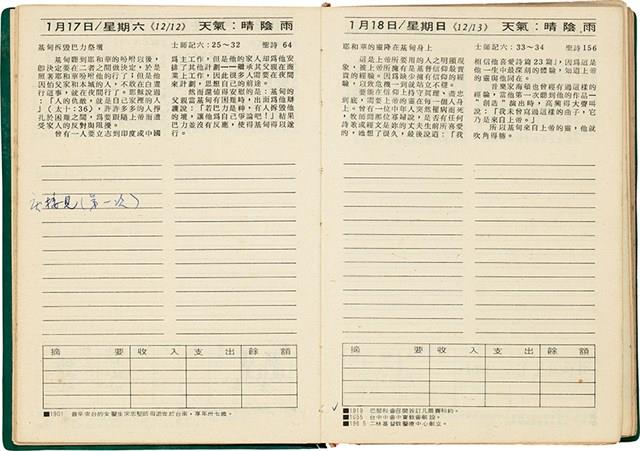 1月17日/星期六 (12/12) 天氣:晴陰雨
基甸拆毀巴力祭壇
士師記六:25～32 聖詩 64
基甸聽到耶和華的吩咐以後,
即決定要在二者之間做決定,於是
照著耶和華所吩咐的行了;但是他
因怕父家和本城的人,不敢在白晝
行這事,就在夜間行了。耶穌說過
:「人的仇敵,就是自己家裡的人
」(太十:36)。許多基督徒
受家人的反對與阻擾。
曾有一人要立志到印度或中國
為主工作,但是他的家人却為他安
排了其他計劃——繼承其父在商
業上的工作,因此很多人需要在夜間
來計劃,思想自己的前途。
然而基甸還是得安慰的,他的
父親當基甸有困難時,出而為他辯
護說:「巴力是神,有人拆毀他
的壇,讓他為自己爭論吧!」結果
巴力並沒有反應,使得基甸得以遂
行。
接見(第一次)
摘要 收入 支出 餘額
■1901
1月18日/星期日 (12/13) 天氣:晴陰雨
耶和華的靈降在基甸身上
士師記六:33～34 聖詩156
這是上帝所要用的人之明顯現
象,被上帝所擁有是基督信仰最寶
貴的經驗。因為缺少擁有信仰的經
驗,以致危機一到就站立不穩。
要衛在信仰上持守異端、盡忠
到底,需要上帝的靈在每一個人身
上。曾有一位中年人突然罹病而死
,牧師問那位寡婦說,是否有任何
詩歌或經文是妳的丈夫生前所喜愛
的,她想了很久,最後說道:「我
相信他喜愛詩篇23篇」,因為這是
他一生中最深刻的體驗,知道上帝
的靈與他同在。
音樂家海頓也曾經有過這樣的
經驗,當他第一次聽到他的作品—
"創造"演出時,高興得大聲叫
說:「我未曾寫過這樣的曲子,它
乃是來自上帝。」
所以基甸來自上帝的靈,他就
吹角得勝。
摘要 收入 支出 餘額
■1919